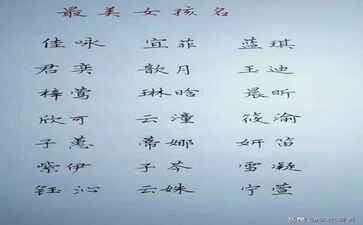 最美女孩名
佳咏 宜菲 蓝琪
君奕 歆月 玉迪
梓莺 琳晗 晨昕
欣可 云潼 筱渝
子蕙 蒂娜 妍陷
紫伊 子芩 雪凝
钰沁 云姝 宁萱